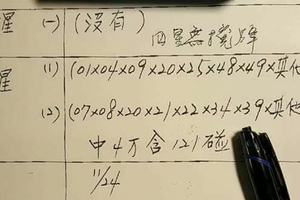 星 (一) (沒有) 四星無撓牌
星 (1) (01×04×09×20×25×48×49×其他
(2) (07×08×20×21×22×34×39×其他
中4万含121碰
11/24